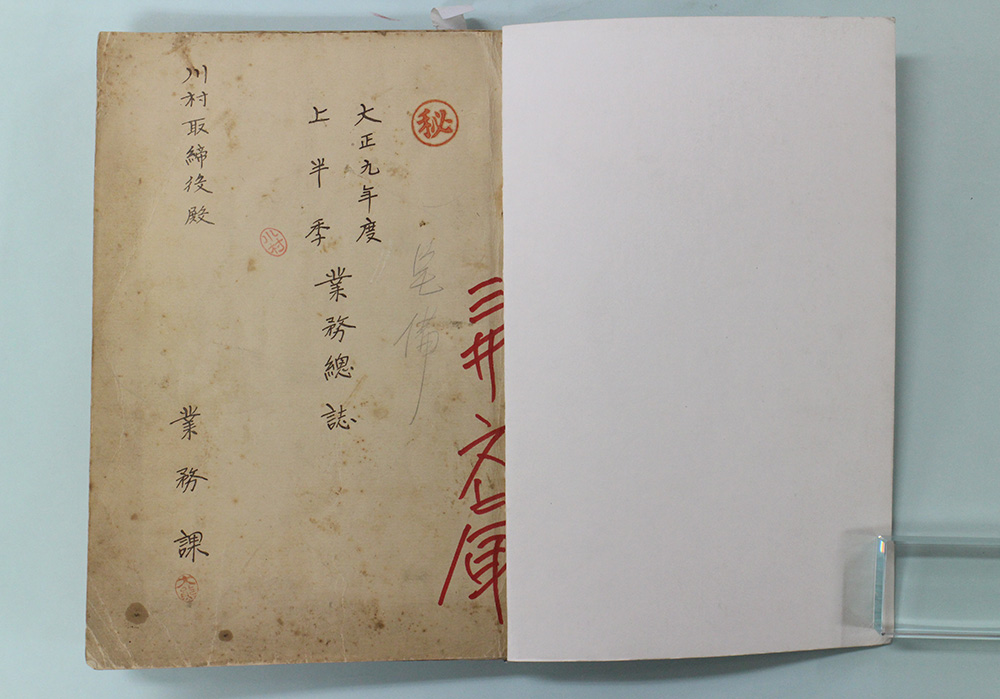 秘
大正九年度
上半季
業務總誌
川村取締役殿
川村
業務課
三井文庫